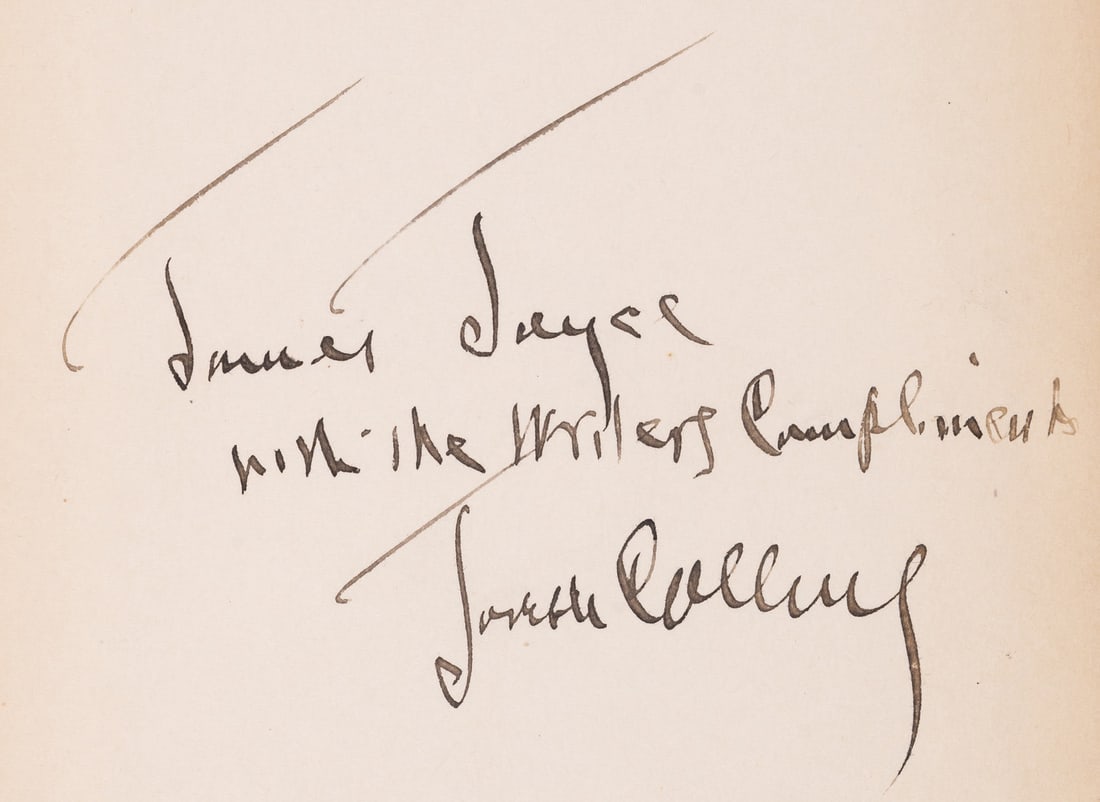 James Joyce
with the Writers Compliments
Joseph Collins